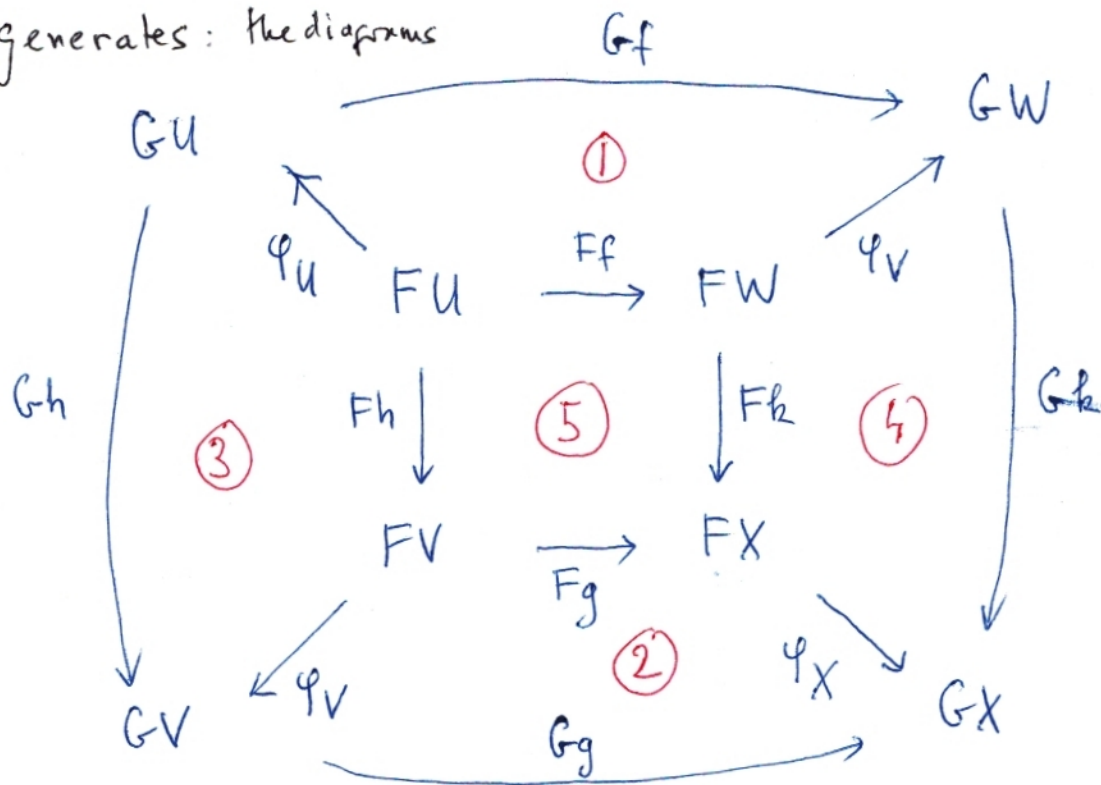 generates: the diagrams
Gf
GU GW
①
φU Ff φV
FU FW
Gh Fh ⑤ Fk ④ Gk
③
FV FX
Fg
② φX
φV GX
GV Gg